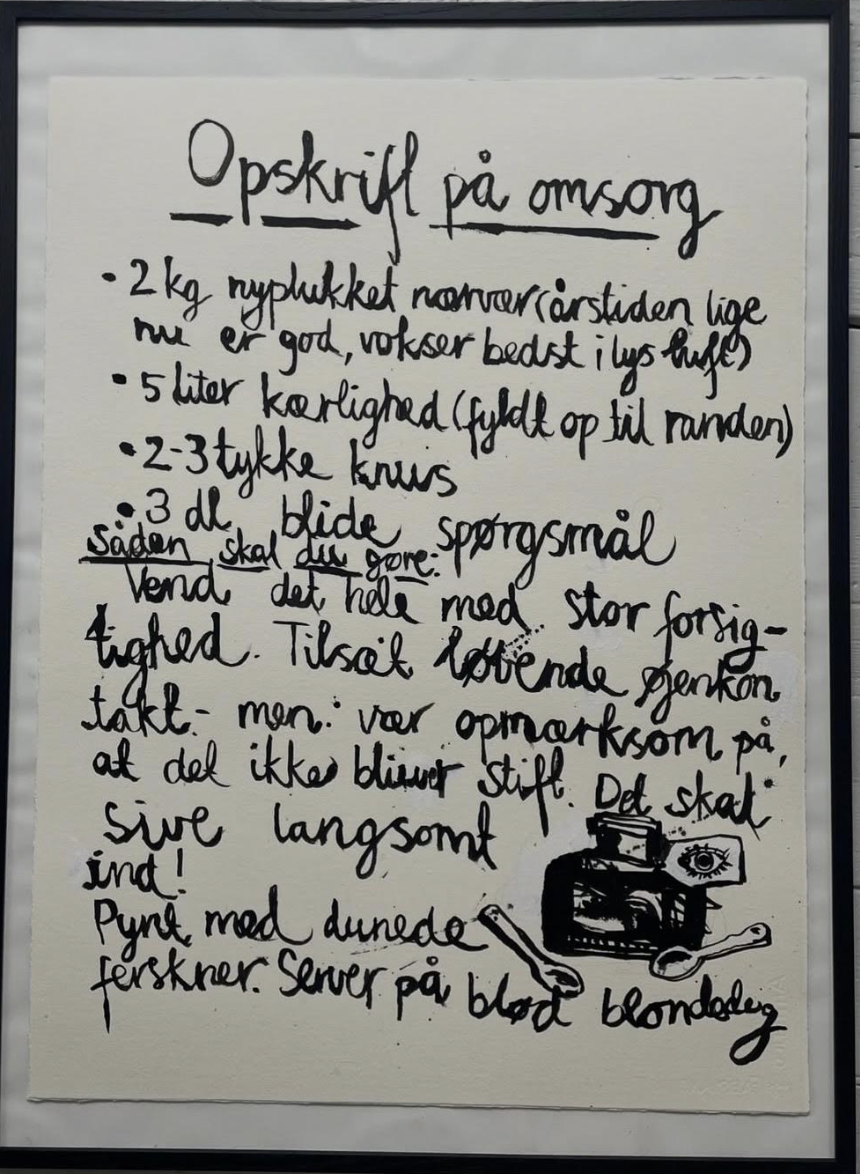 Opskrift på omsorg
• 2 kg nyplukket nærvær (årstiden lige
nu er god, vokser bedst i lys luft)
• 5 liter kærlighed (fyldt op til randen)
• 2-3 tykke knus
• 3 dl blide spørgsmål
Sådan skal du gøre:
Vend det hele med stor forsig-
tighed. Tilsæt løbende øjenkon
takt - men: vær opmærksom på,
at det ikke bliver stift. Det skal
sive langsomt
ind!
Pynt med dunede
ferskner. Server på blød blondedug